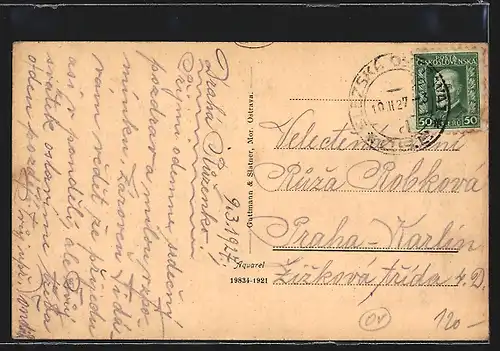 Drahá Růženko!
9.3.1927.
Přijmi odemne srdečný
pozdrav a milou vzpo-
mínku. Zároveň Ti dá-
vám vědět že přijedu
asi v pondělí, ale
svátek oslavíme
oden pozdě
Guttmann & Slatner, Mor. Ostrava.
Aquarel
19834-1921
SLEZSKÁ OS
10.II.27
ČESKOSLOVENSKÁ
50 50
Velectěná paní
Růža Robková
Praha-Karlín
Žižková třída 4 D.
120-